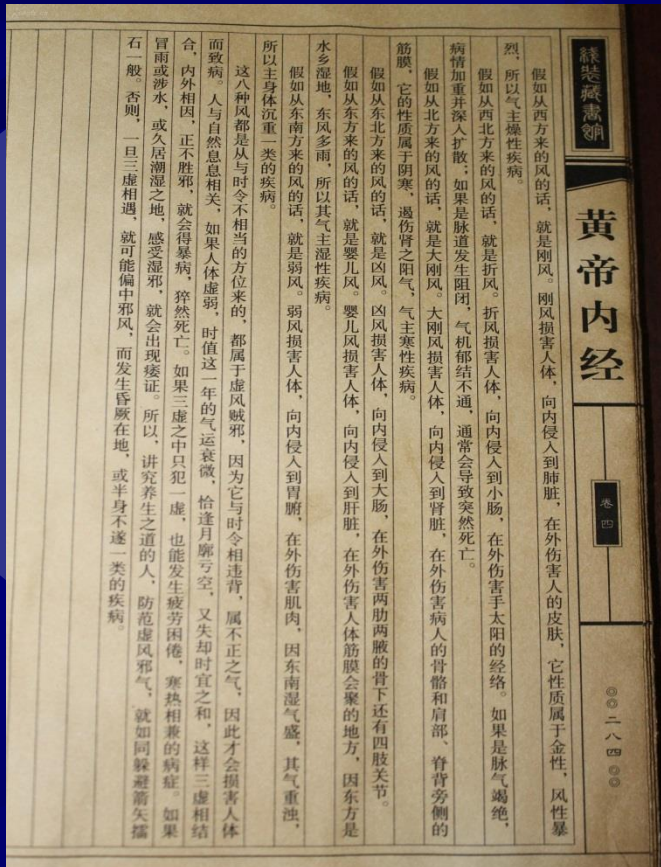 线装藏书馆
黄帝内经
卷四
◎◎二八四◎◎
假如从西方来的风的话，就是刚风。刚风损害人体，向内侵入到肺脏，在外伤害人的皮肤，它性质属于金性，风性暴
烈，所以气主燥性疾病。
假如从西北方来的风的话，就是折风。折风损害人体，向内侵入到小肠，在外伤害手太阳的经络。如果是脉气竭绝，
病情加重并深入扩散；如果是脉道发生阻闭，气机郁结不通，通常会导致突然死亡。
假如从北方来的风的话，就是大刚风。大刚风损害人体，向内侵入到肾脏，在外伤害病人的骨骼和肩部、脊背旁侧的
筋膜，它的性质属于阴寒，遏伤肾之阳气，气主寒性疾病。
假如从东北方来的风的话，就是凶风。凶风损害人体，向内侵入到大肠，在外伤害两肋两腋的骨下还有四肢关节。
假如从东方来的风的话，就是婴儿风。婴儿风损害人体，向内侵入到肝脏，在外伤害人体筋膜会聚的地方，因东方是
水乡湿地，东风多雨，所以其气主湿性疾病。
假如从东南方来的风的话，就是弱风。弱风损害人体，向内侵入到胃腑，在外伤害肌肉，因东南湿气盛，其气重浊，
所以主身体沉重一类的疾病。
这八种风都是从与时令不相当的方位来的，都属于虚风贼邪，因为它与时令相违背，属不正之气，因此才会损害人体
而致病。人与自然息息相关，如果人体虚弱，时值这一年的气运衰微，恰逢月廓亏空，又失却时宜之和，这样三虚相结
合，内外相因，正不胜邪，就会得暴病，猝然死亡。如果三虚之中只犯一虚，也能发生疲劳困倦，寒热相兼的病症。如果
冒雨或涉水，或久居潮湿之地，感受湿邪，就会出现痿证。所以，讲究养生之道的人，防范虚风邪气，就如同躲避箭矢擂
石一般。否则，一旦三虚相遇，就可能偏中邪风，而发生昏厥在地，或半身不遂一类的疾病。